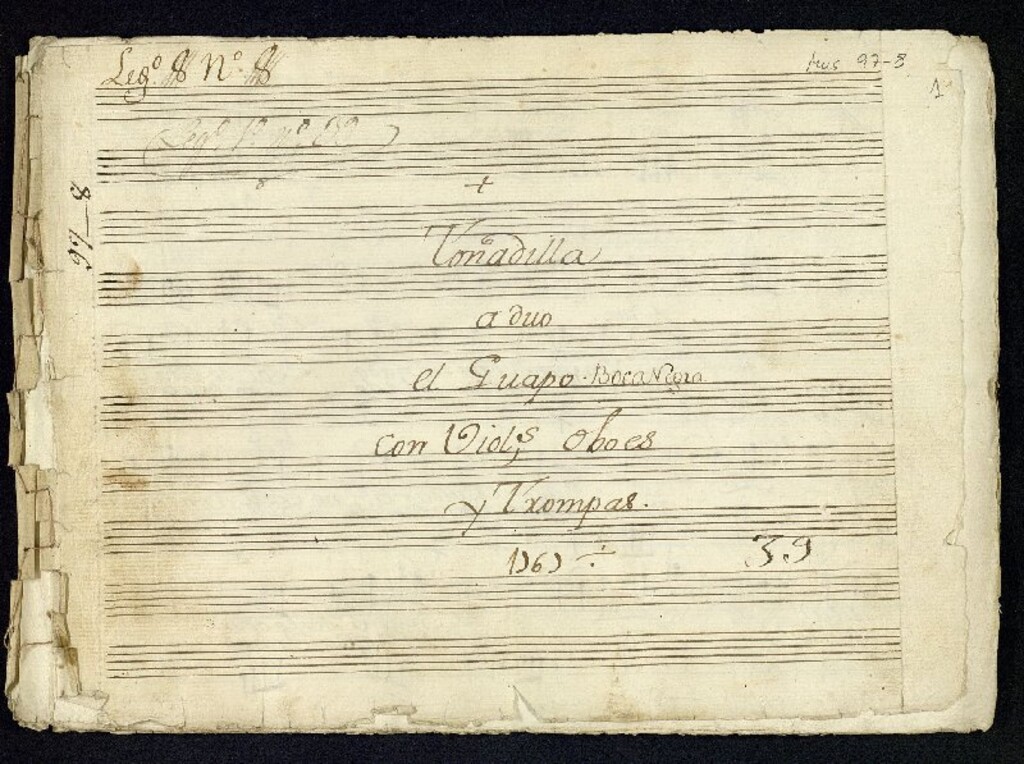 Leg.º Nº
Mus 97-8
1
(Leg.º 1º nº
97-8
+
Tonadilla
a duo
el Guapo. BocaNegra.
con Viol.s oboes
y Trompas.
1767
39